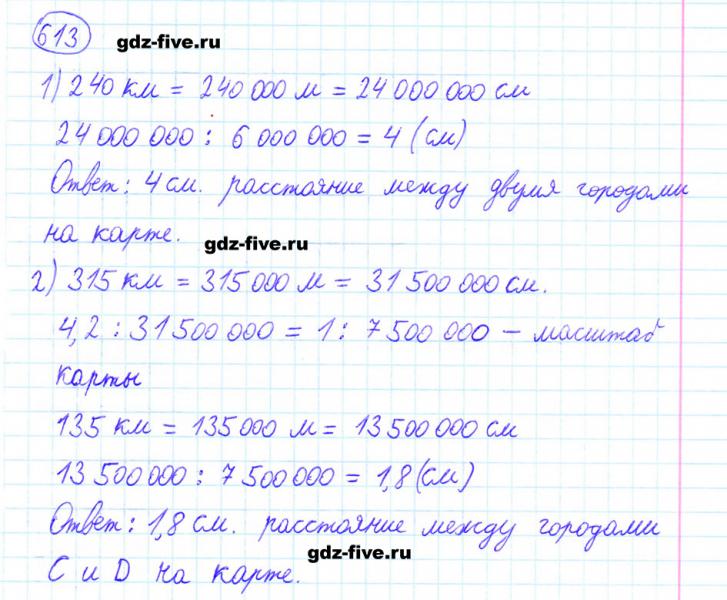 613 gdz-five.ru
1) 240 км = 240 000 м = 24 000 000 см
24 000 000 : 6 000 000 = 4 (см)
Ответ: 4 см. расстояние между двумя городами
на карте. gdz-five.ru
2) 315 км = 315 000 м = 31 500 000 см.
4,2 : 31 500 000 = 1 : 7 500 000 – масштаб
карты
135 км = 135 000 м = 13 500 000 см
13 500 000 : 7 500 000 = 1,8 (см)
Ответ: 1,8 см. расстояние между городами
gdz-five.ru
C и D на карте.